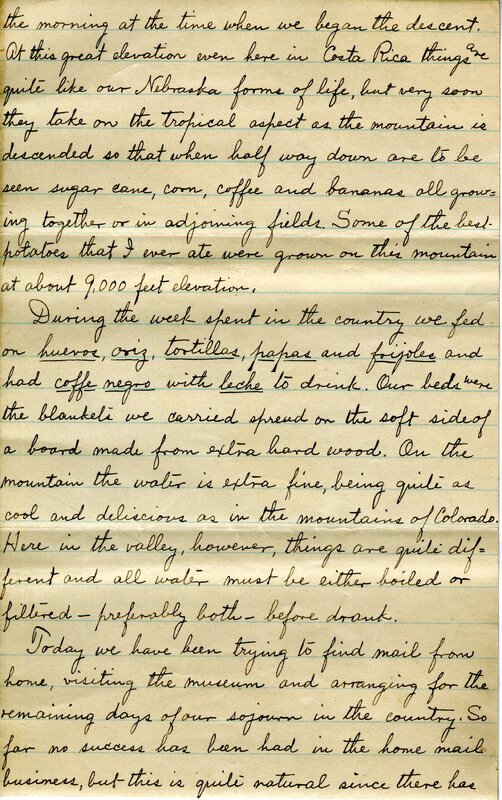 the morning at the time when we began the descent.
At this great elevation even here in Costa Rica things are
quite like our Nebraska forms of life, but very soon
they take on the tropical aspect as the mountain is
descended so that when half way down are to be
seen sugar cane, corn, coffee and bananas all grow=
ing together or in adjoining fields. Some of the best
potatoes that I ever ate were grown on this mountain
at about 9,000 feet elevation.
During the week spent in the country we fed
on huevos, oriz, tortillas, papas and frijoles and
had coffe negro with leche to drink. Our beds were
the blankets we carried spread on the soft side of
a board made from extra hard wood. On the
mountain the water is extra fine, being quite as
cool and deliscious as in the mountains of Colorado.
Here in the valley, however, things are quite dif=
ferent and all water must be either boiled or
filtered - preferably both - before drank.
Today we have been trying to find mail from
home, visiting the museum and arranging for the
remaining days of our sojourn in the country. So
far no success has been had in the home mail
business, but this is quite natural since there has